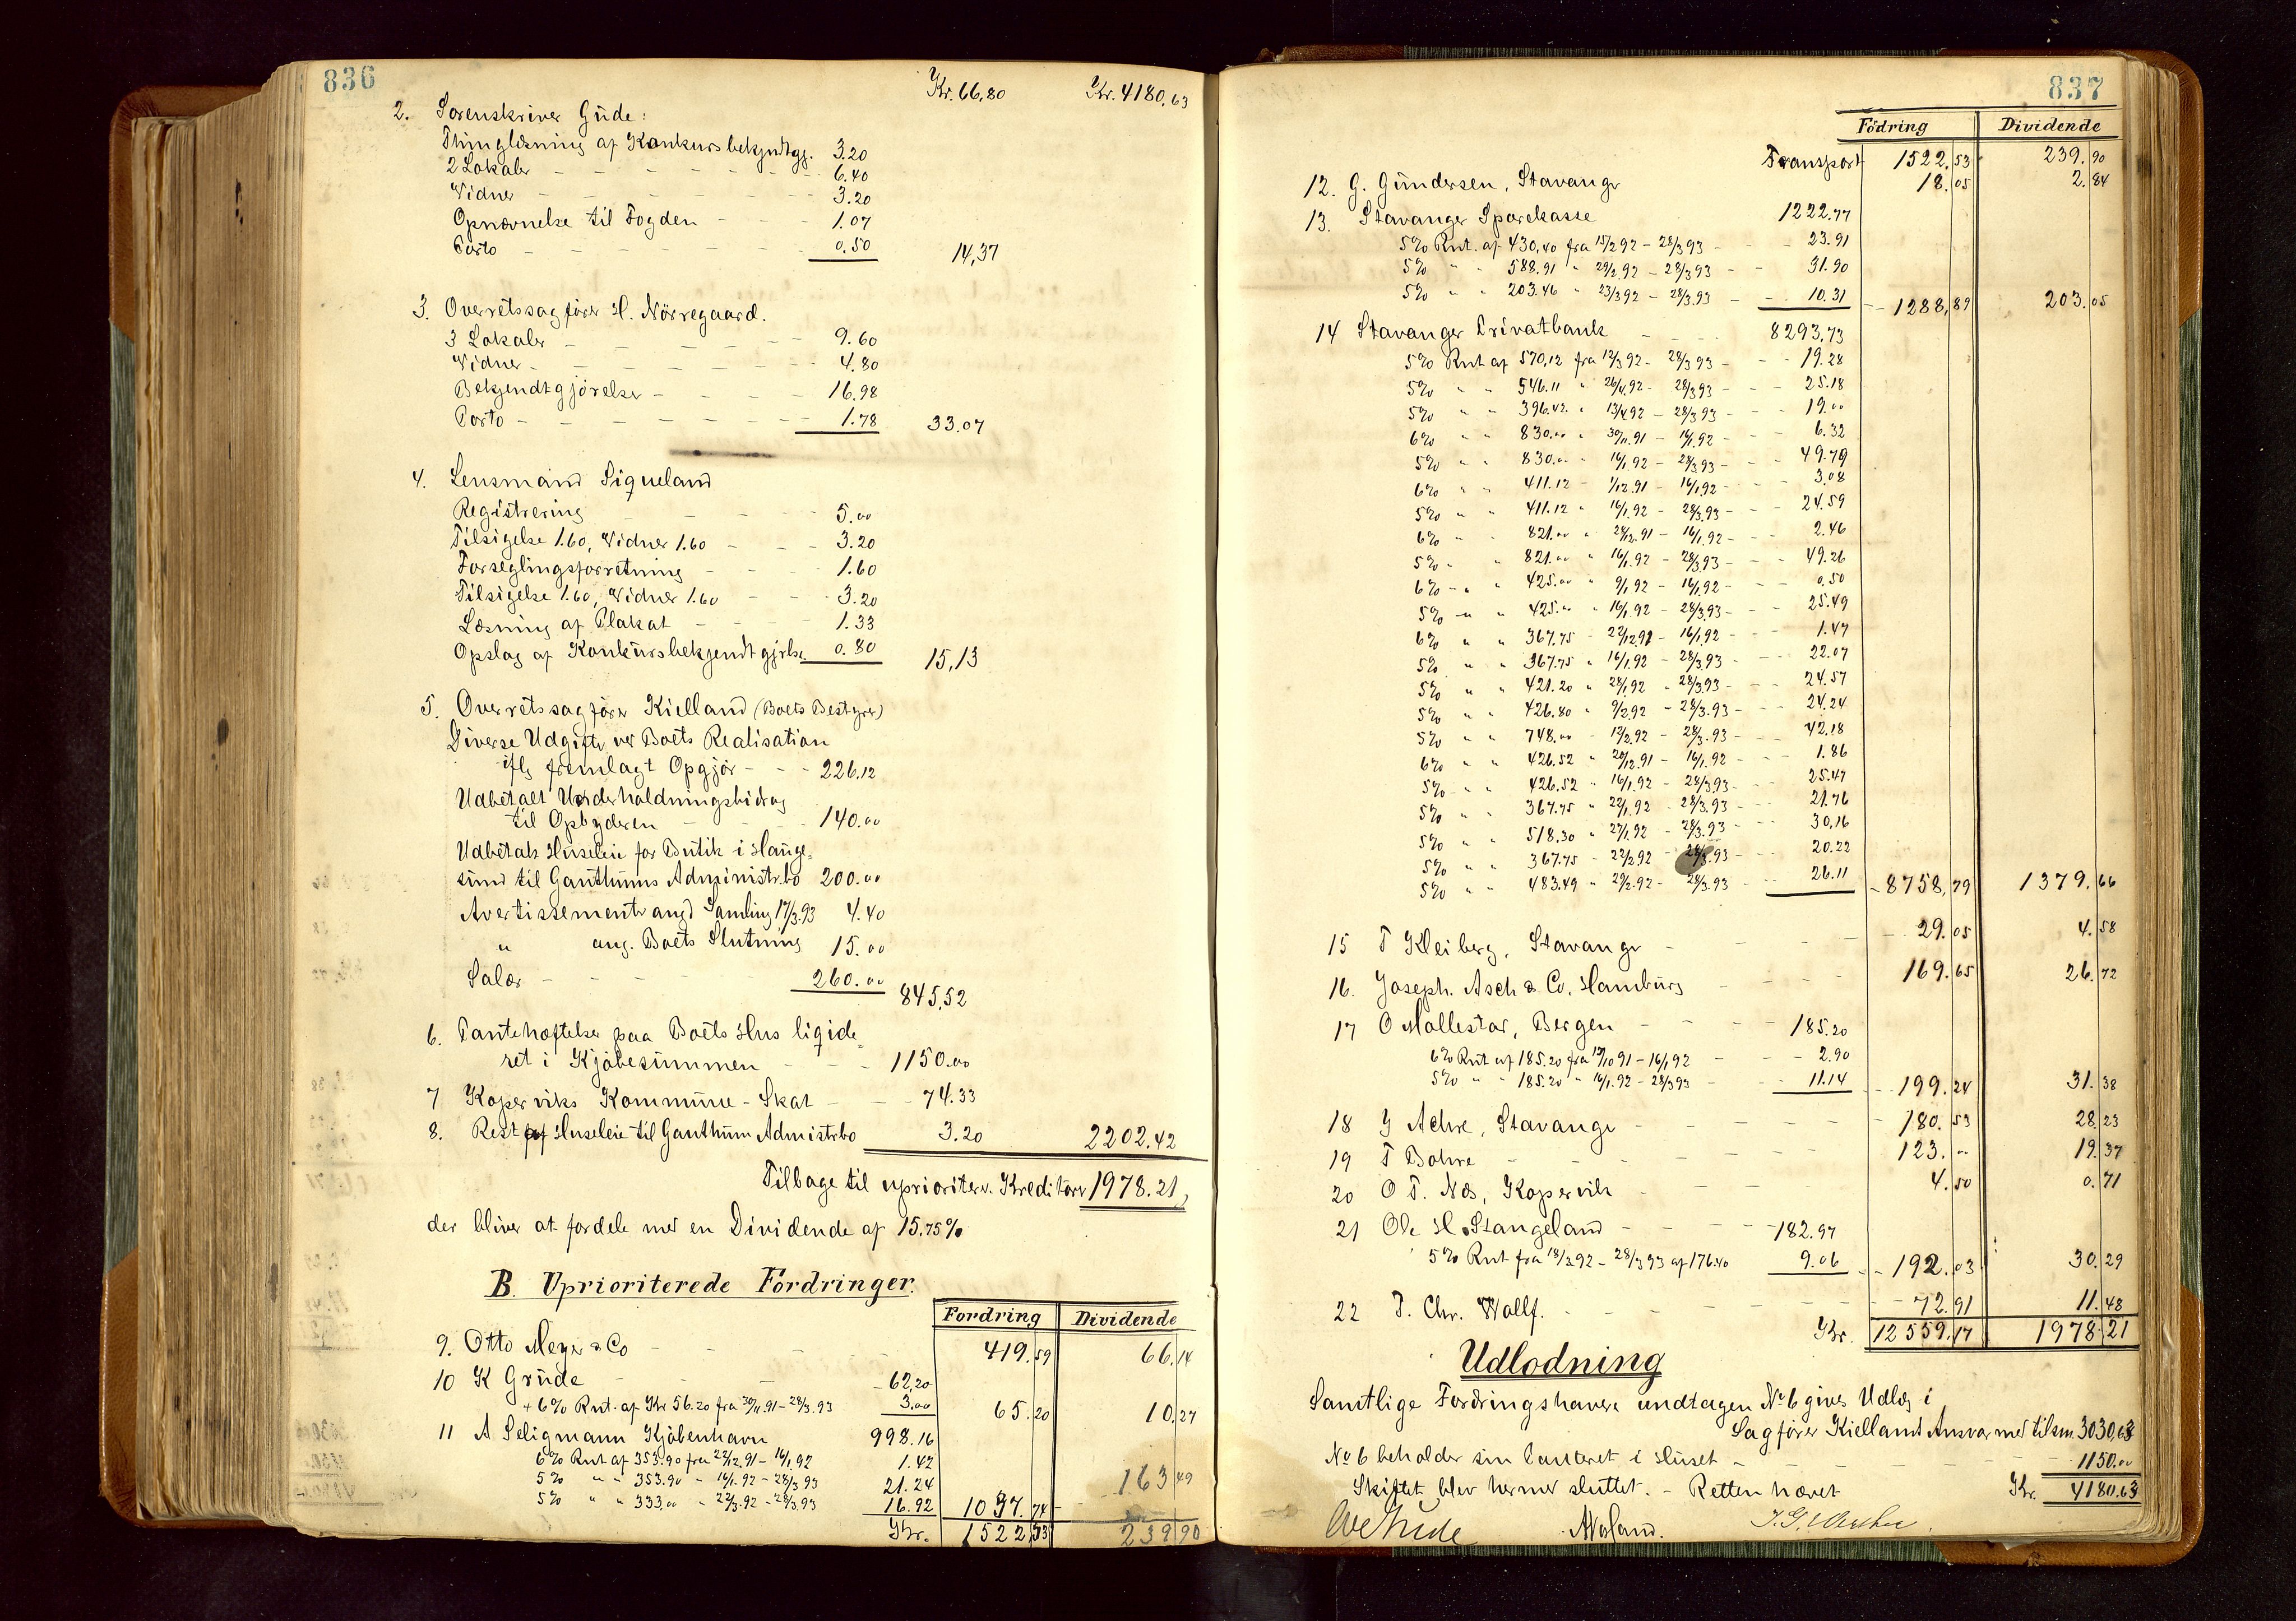 836
Kr. 66,80 Kr. 4180,63
2. Sorenskriver Gude:
Thinglæsning af Konkursbekjendtgj. 3.20
2 Lokaler - - - - 6.40
Vidner - - - - 3.20
Opnævnelse til Fogden - - - 1.07
Porto - - - - 0.50 14,37
3. Overretssagfører H. Nörregaard.
3 Lokaler - - - - 9.60
Vidner - - - - 4.80
Bekjendtgjörelser - - - - 16.98
Porto - - - - 1.78 33.07
4. Lensmand Siqueland
Registrering - - - 5.00
Tilsigelse 1.60, Vidner 1.60 - - - 3.20
Forseglingsforretning - - - 1.60
Tilsigelse 1.60, Vidner 1.60 - - - 3.20
Læsning af Plakat - - - 1.33
Opslag af Konkursbekjendtgjørlse 0.80 15,13
5. Overretssagfører Kielland (Boets Bestyrer)
Diverse Udgifter ver Boets Realisation
iflg fremlagt Opgjør - - - 226.12
Udbetalt Underholdningsbidrag
til Opbyderen - - - 140.00
Udbetalt Husleie for Butik i Hauge-
sund til Ganthums Administr.bo 200.00
Avertissement angd Samling 17/3.93 4.40
" ang. Boets Slutning 15.00
Salær - - - - 260.00 845,52
6. Pantehæftelser paa Boets Hus liqide-
ret i Kjöbesummen - - - 1150.00
7 Koperviks Kommune - Skat - - - 74.33
8. Rest af Husleie til Ganthum Admistrbo 3.20 2202.42
Tilbage til uprioriterv. Kreditorer 1978.21,
der bliver at fordele med en Dividende af 15.75%
B. Uprioriterede Fordringer.
Fordring Dividende
9. Otto Meyer & Co - - - 419.59 66.14
10 K Grude - - - 62,20
+ 6% Rnt. af Kr 56.20 fra 30/11.91 - 28/3.93 3.00 65.20 10.27
11 A Seligmann Kjöbenhavn 998.16
6% Rnt af 353.90 fra 22/12.91 - 16/1.92 1.42
5% " " 353.90 " 16/1.92 - 28/3 93 21.24
5% " " 333,00 " 22/3.92 - 28/3.93 16.92 1037.74 163.49
Kr. 1522.53 239.90
837
Fodring Dividende
Transport 1522.53 239.90
12. G. Gundersen, Stavanger 18.05 2.84
13. Stavanger Sparekasse 1222.77
5% Rnt. af 430.40 fra 15/2 92 - 28/3 93 - - 23.91
5% " " 588.91 " 29/2.92 - 28/3 93 - - 31.90
5% " " 203.46 " 23/3 92 - 28/3.93 - - 10.31 1288,89 203.05
14 Stavanger Privatbank - - 8293,73
5% Rnt af 570,12 fra 12/3 92 - 28/3 93 - - 19.28
5% " " 546.11 " 26/4.92 - 28/3 93 - - 25.18
5% " " 396.42 " 13/4 92 - 28/3.93 - - 19.00
6% " " 830.00 " 30/11.91 - 16/1.92 - - 6.32
5% " " 830.00 " 16/1.92 - 28/3.93 - - 49.79
6% " " 411.12 - 1/12.91 - 16/1 92 - - 3.08
5% " " 411.12 " 16/1.92 - 28/3.93 - - 24.59
6% " " 821.00 " 28/12.91 - 16/1.92 - - 2.46
5% " " 821.00 " 16/1.92 - 28/3.93 - - 49.26
6% - " 425.00 " 9/1.92 - 16/1.92 - - 0.50
5% " " 425.00 " 16/1.92 - 28/3.93 - - 25.49
6% " " 367.75 - 22/12.91 - 16/1.92 - - 1.47
5% " " 367.75 " 16/1.92 - 28/3.93 - - 22.07
5% " " 421.20 " 28/1.92 " 28/3.93 - - 24.57
5% " " 426.80 " 9/2.92 - 28/3.93 - - 24.24
5% " " 748.00 - 12/2.92 - 28/3.93 - - 42.18
6% " " 426.52 " 20/12.91 - 16/1.92 - - 1.86
5% " " 426.52 " 16/1.92 - 28/3.93 - - 25.47
5% " " 367.75 " 22/1.92 - 28/3.93 - - 21.76
5% " " 518.30 " 27/1.92 - 28/3.93 - - 30,16
5% " " 367.75 - 22/2.92 - 28/3.93 - - 20.22
5% " " 483.49 " 29/2.92 - 28/3.93 - - 26.11 8758,79 1379.66
15 T Kleiberg, Stavanger - - - 29.05 4.58
16. Joseph. Asch & Co. Hamburg - - - 169.65 26.72
17 O Mollestar, Bergen - - - 185.20
6% Rnt af 185.20 fra 12/10 91 - 16/1 92 - - 2.90
5% " " 185.20 " 16/1.92 - 28/3 93 - - 11.14 199.24 31.38
18 J Achre, Stavanger - - - 180.53 28.23
19 T Bohre - - - 123.- 19.37
20 O T. Næs, Kopervik - - - 4.50 0.71
21 Ole H. Stangeland - - - 182.97
5% Rnt fra 18/3.92 - 28/3 93 af 176.40 9.06 192.03 30.29
22 J. Chr. Wallf. - - - 72.91 11.48
Kr. 12559.17 1978.21
Udlodning
Samtlige Fordringshavere undtagen No 6 gives Udlæg i
Sagfører Kiellands Ansvar med tilsm. 3030,63
No 6 beholder sin Panteret i Huset - - - 1150.00
Skiftet blev hermed sluttet. - Retten hævet Kr. 4180.63